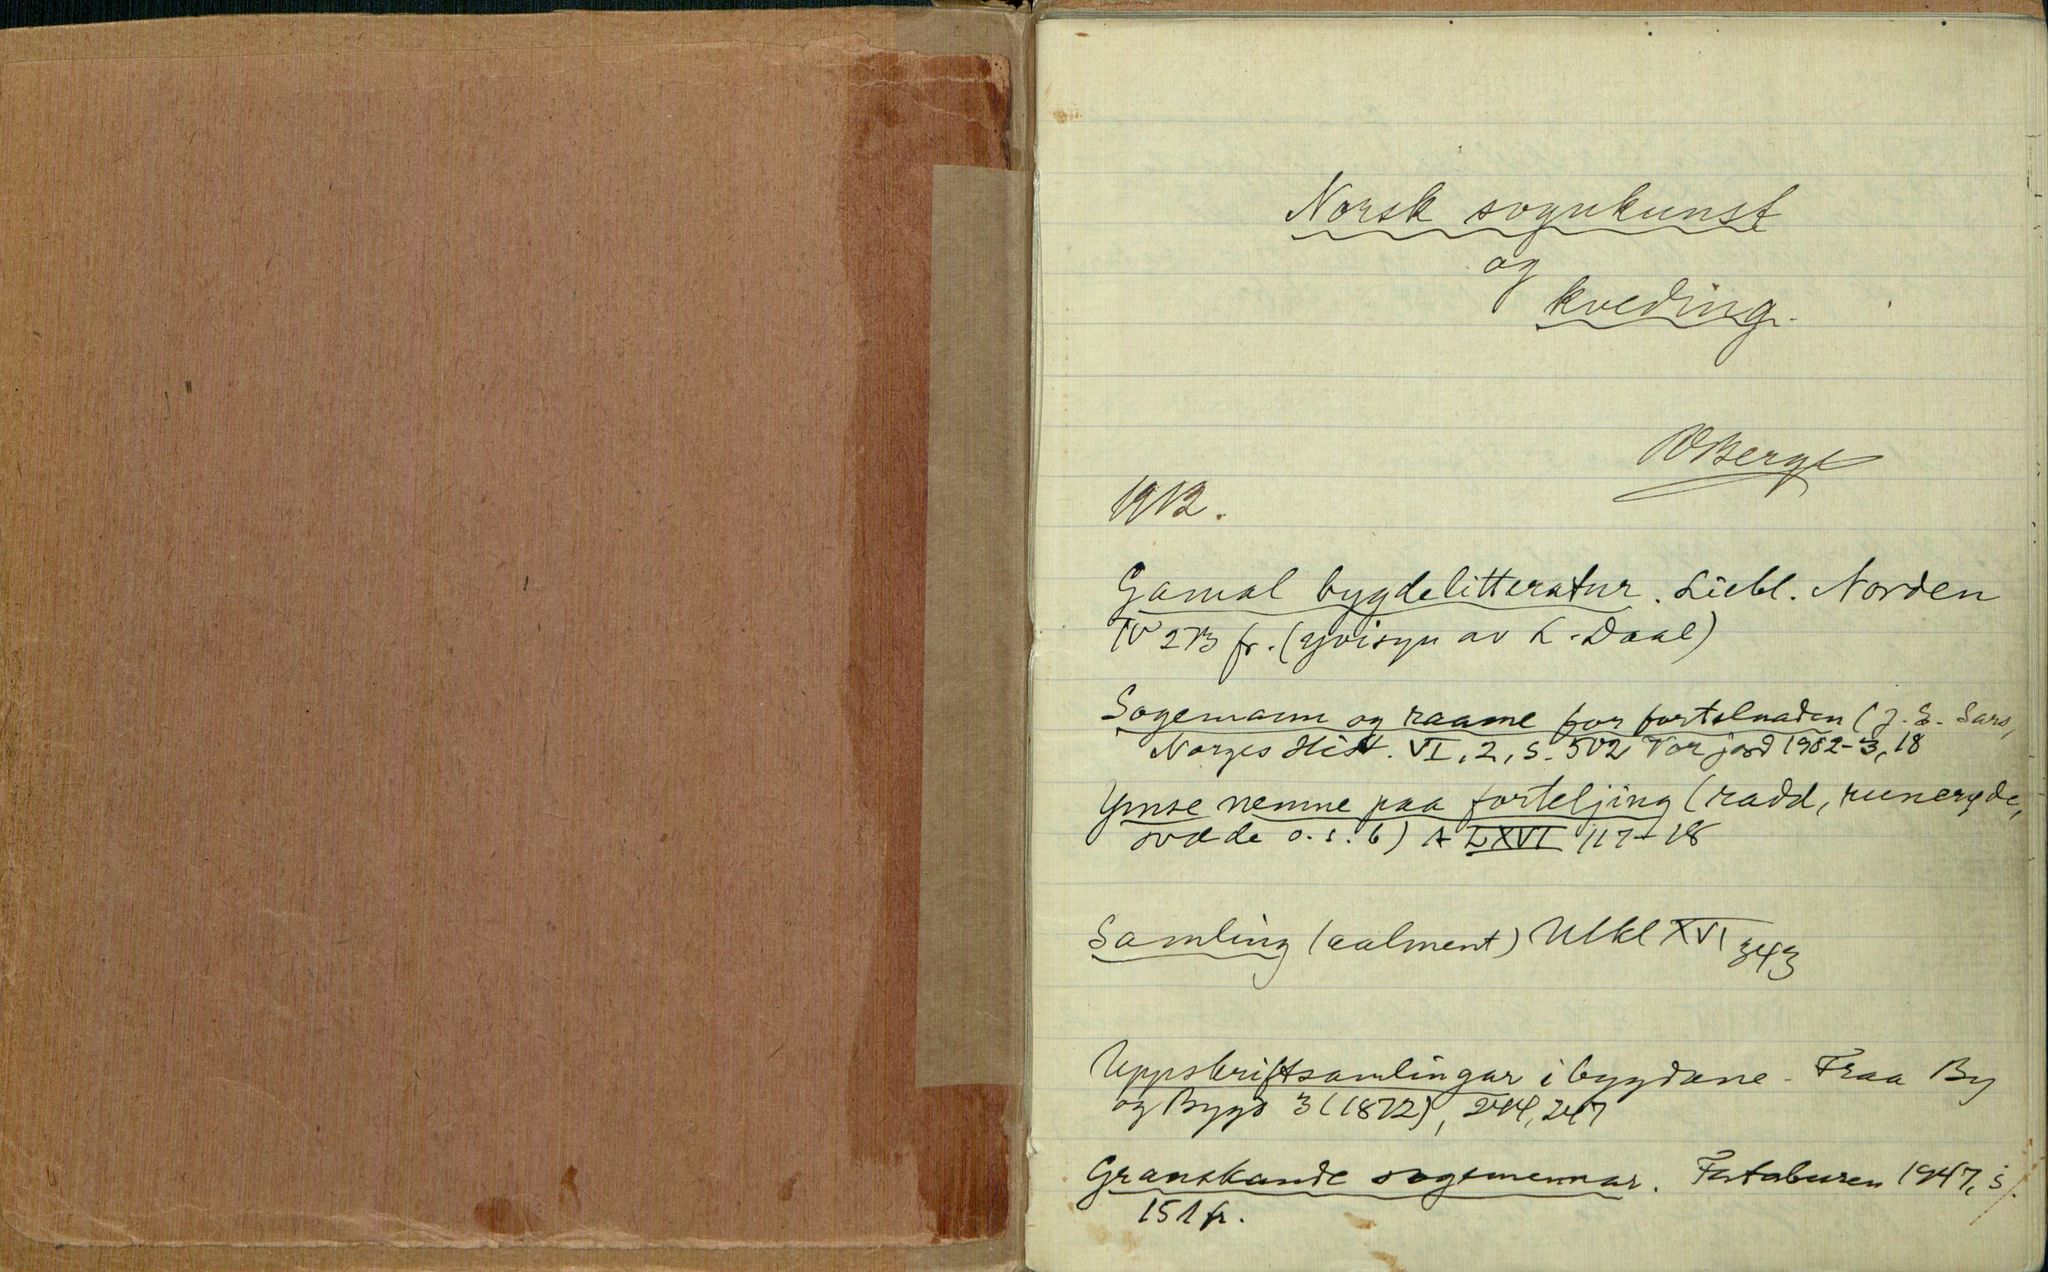 Norsk sognkunst
og
kveding.
RBerge
1912.
Gamal bygdelitteratur. Liebl. Norden
IV 273 fr. (yvisyn av L. Daae)
Sogemann og raame for forteljnaden (J. E. Sars,
Norges Hist. VI, 2, s. 502 Vor jord 1902-3, 18
Ymse nemne paa forteljing (radd, runerøde,
svæde o.s.b) A LXVI 117-18
Samling (aalment) Utkl XVI 343
Uppskriftsamlingar i bygdane. Fraa By
og Bygd 3 (1872), 244, 247
Granskande sogemennar. Fataburen 1947, s.
151 fr.